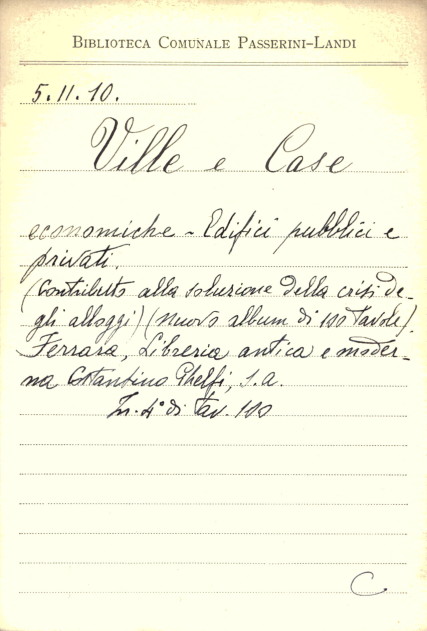 BIBLIOTECA COMUNALE PASSERINI-LANDI
5.11.10.
Ville e Case
economiche - Edifici pubblici e
privati.
(Contributo alla soluzione della crisi de-
gli alloggi) (Nuovo album di 100 tavole).
Ferrara, Libreria antica e moder-
na Costantino Ghelfi, s.a.
In. 4° di tav. 100
C